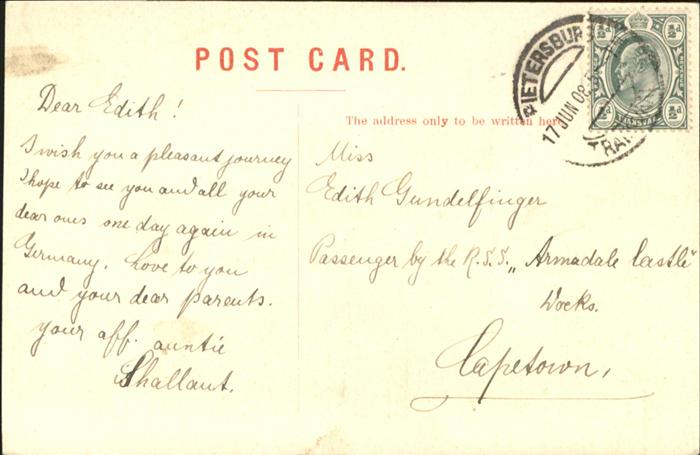 POST CARD.
The address only to be written here
PIETERSBURG
17 JUN 08
TRA
½d ½d
½d ½d
TRANSVAAL
Dear Edith!
I wish you a pleasant journey
I hope to see you and all your
dear ones one day again in
Germany. Love to you
and your dear parents.
your aff. auntie
Shallaut.
Miss
Edith Gundelfinger
Passenger by the R.S.S. „Armadale Castle"
Docks.
Capetown,